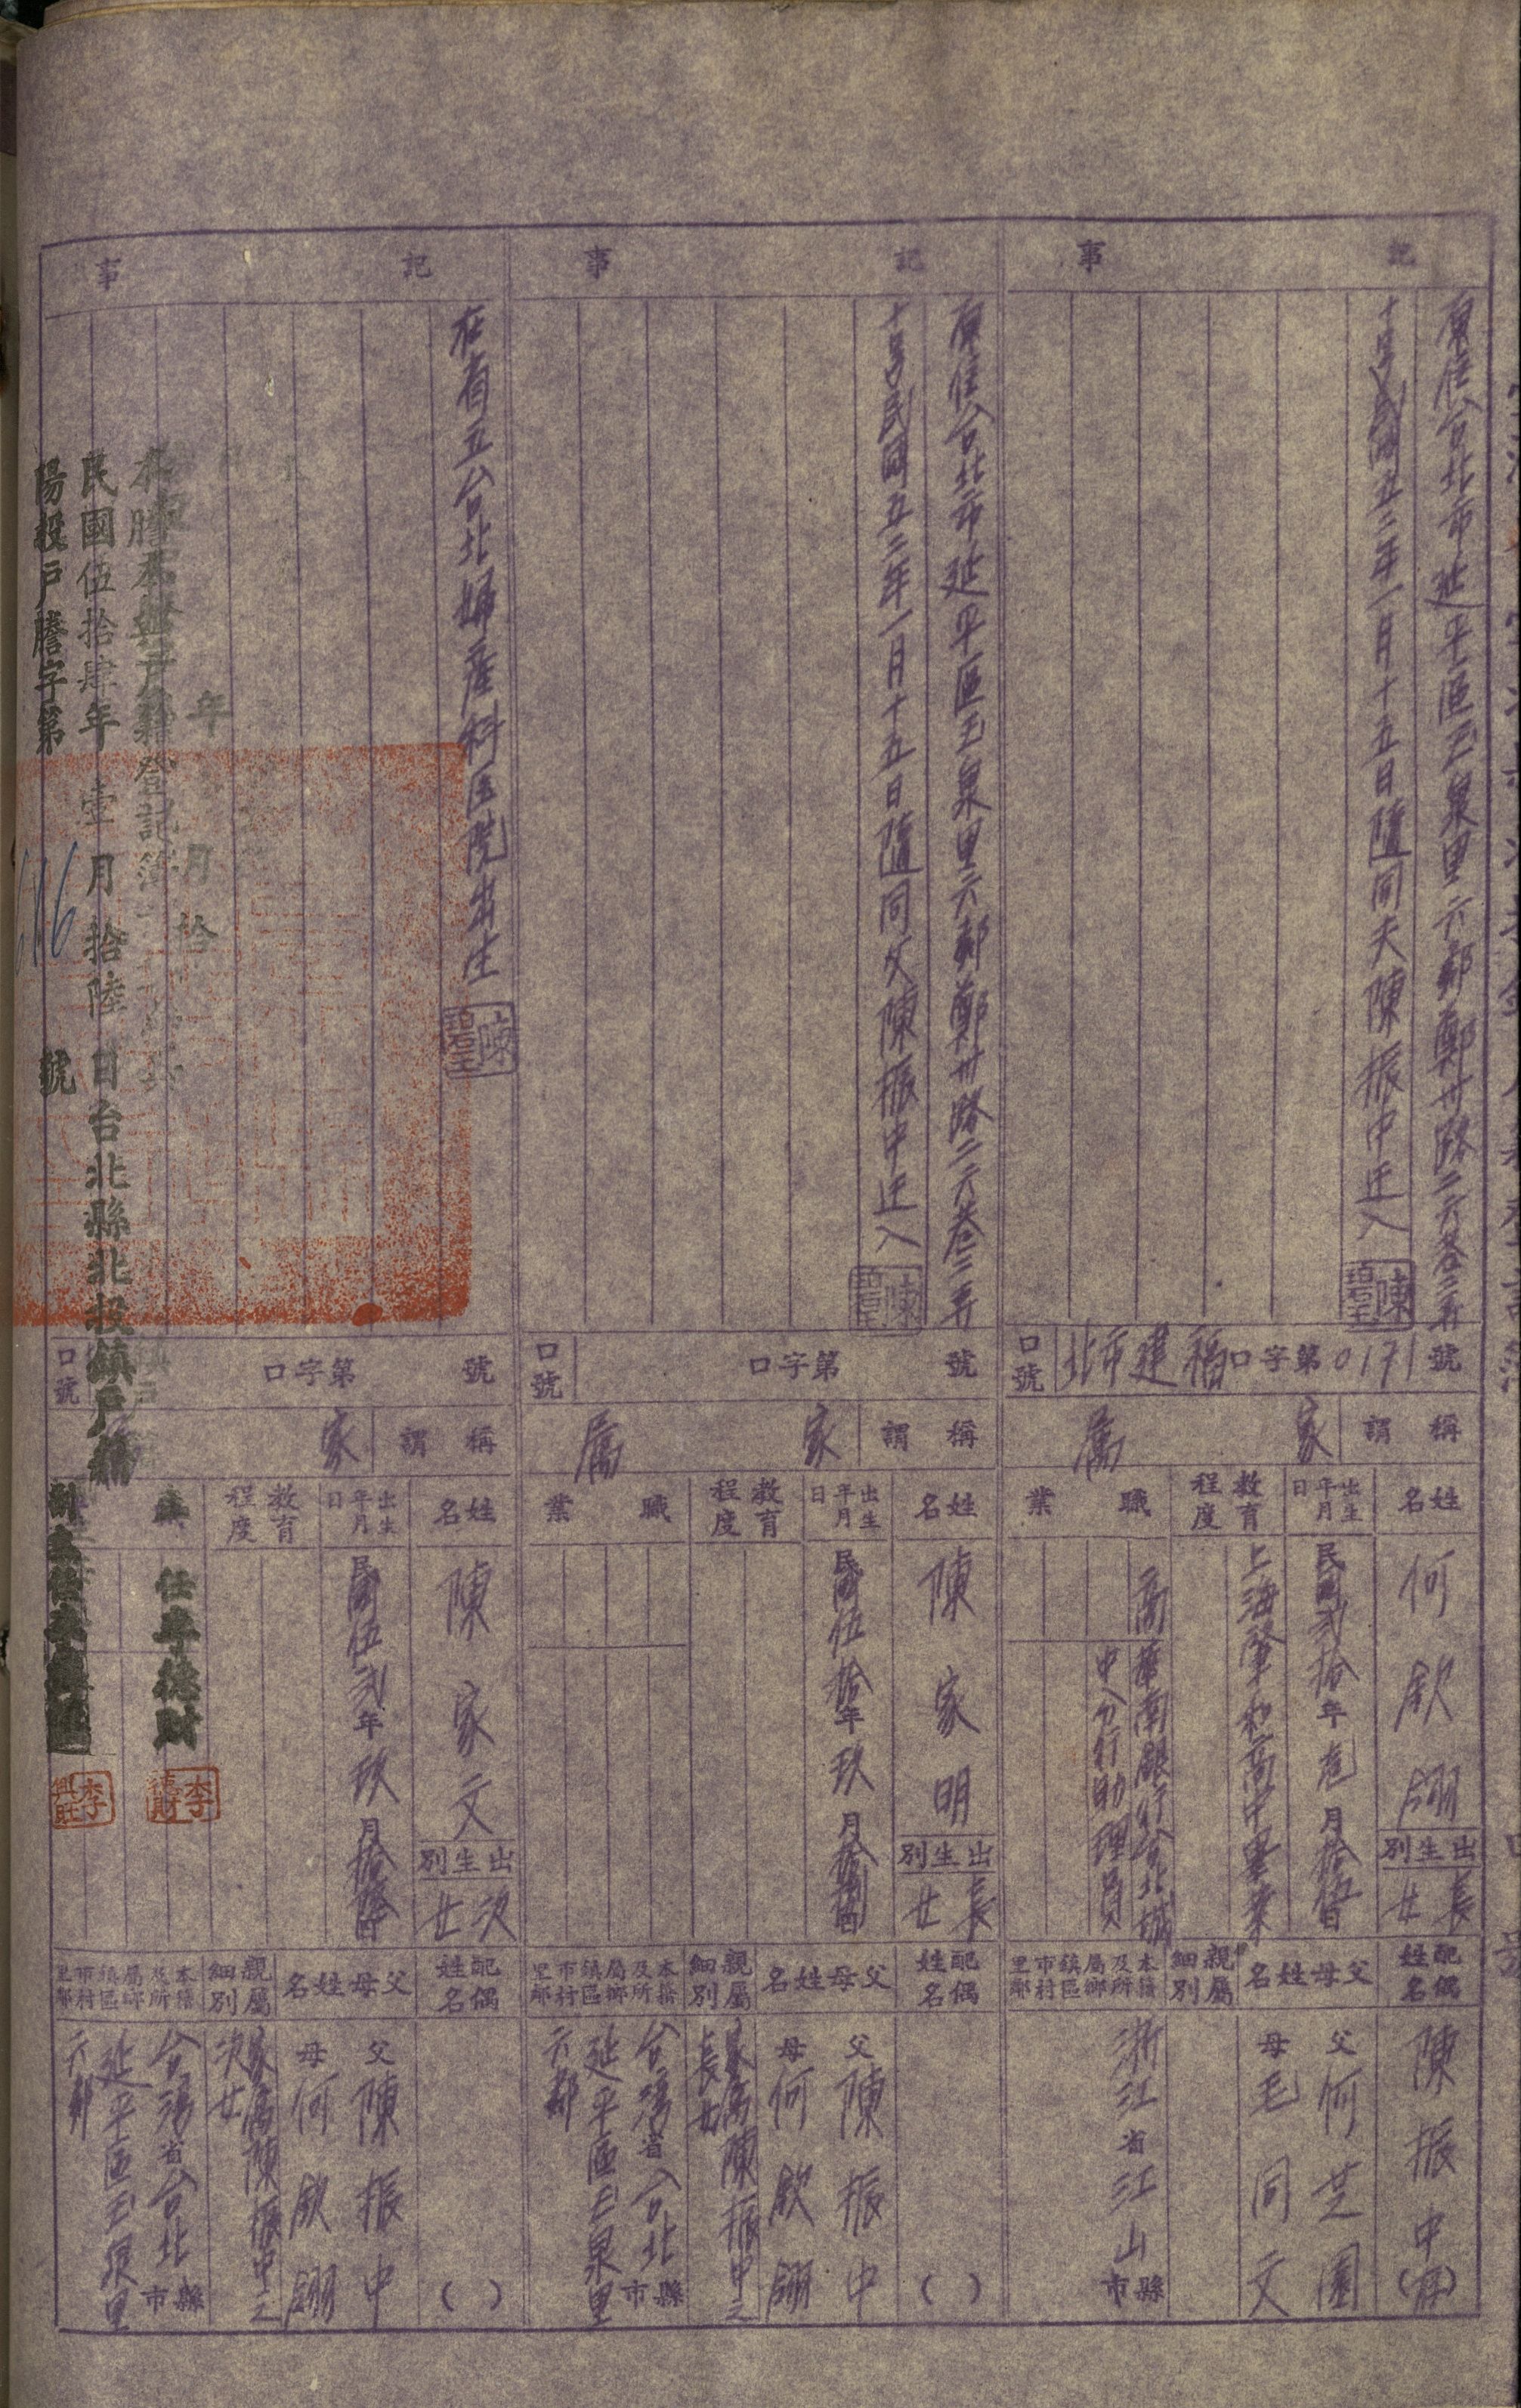 記事
原住台北市延平區玉泉里六鄰鄭州路二六巷三弄
十号民國五二年一月十五日隨同夫陳振中迁入
陳碧玉
口號 北市建福口字第0171號
稱謂 家屬
姓名 何欽翎
出生別 長女
出生年月日 民國弍拾年 月拾伍日
教育程度 上海肇和高中畢業
職業 商 華南銀行台北城
中分行助理員
配偶姓名 陳振中(存)
父母姓名 父何芝園
母毛同文
親屬細別
本籍及所屬鄉鎮區市村里鄰 浙江省江山縣市
記事
原住台北市延平區玉泉里六鄰鄭州路二六巷三弄
十号民國五二年一月十五日隨同父陳振中迁入
陳碧玉
口號 口字第 號
稱謂 家屬
姓名 陳家明
出生別 長女
出生年月日 民國伍拾年玖月拾 日
教育程度
職業
配偶姓名 ( )
父母姓名 父陳振中
母何欽翎
親屬細別 家屬陳振中之
長女
本籍及所屬鄉鎮區市村里鄰 台灣省台北縣市
延平區玉泉里
六鄰
記事
在省立台北婦產科医院出生
陳碧玉
口號 口字第 號
稱謂 家
姓名 陳家文
出生別 次女
出生年月日 民國伍弍年玖月拾 日
教育程度
配偶姓名 ( )
父母姓名 父陳振中
母何欽翎
親屬細別 家屬陳振中之
次女
本籍及所屬鄉鎮區市村里鄰 台灣省台北縣市
延平區玉泉里
六鄰
年 月 拾
本謄本與戶籍登記簿
民國伍拾肆年壹月拾陸日台北縣北投鎮戶籍
陽投戶謄字第 號
任李德財
李德財
李興旺